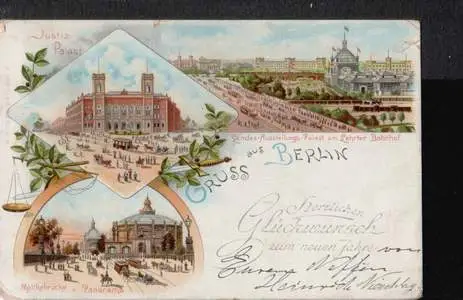 Justiz
Palast
Landes-Ausstellungs-Palast am Lehrter Bahnhof
GRUSS aus BERLIN
Herzlichen
Glückwunsch
zum neuen Jahre von
Eurem Neffen
Heinrich
Moltkebrücke u. Panorama